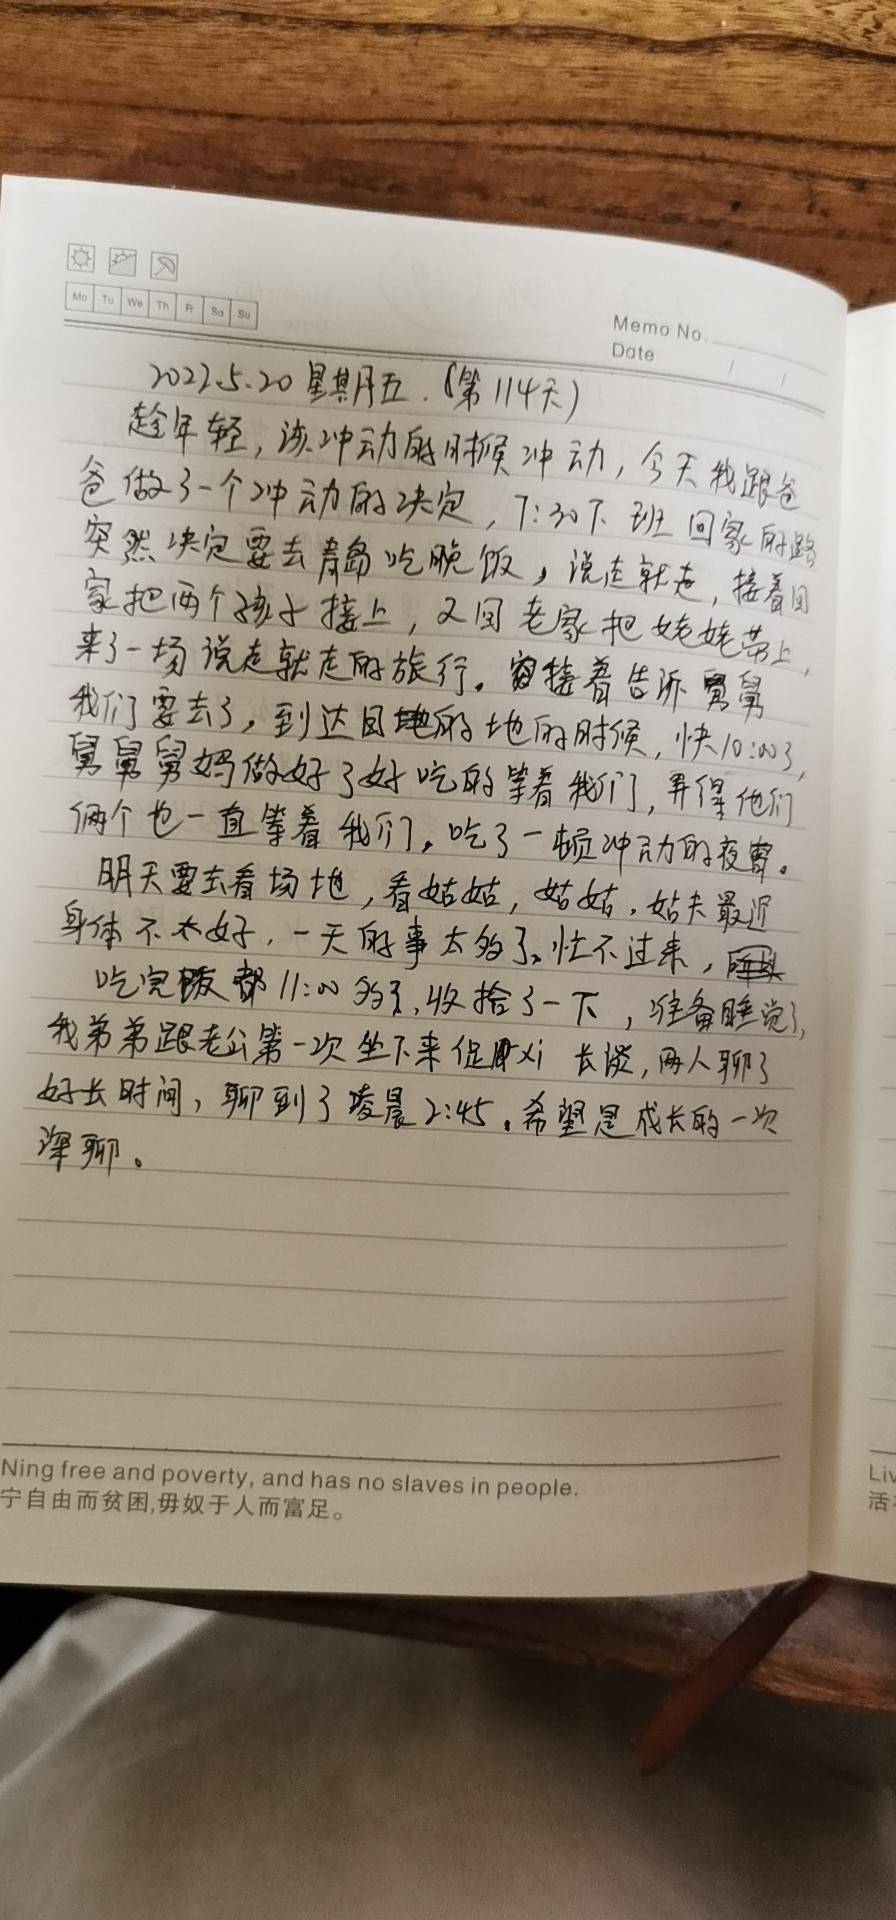 Mo Tu We Th Fr Sa Su
Memo No.
Date / /
2022.5.20 星期五.(第114天)
趁年轻,该冲动的时候冲动,今天我跟爸
爸做了一个冲动的决定,7:30下班回家的路
突然决定要去青岛吃晚饭,说走就走,接着回
家把两个孩子接上,又回老家把姥姥带上,
来了一场说走就走的旅行。接着告诉舅舅
我们要去了,到达目的地的时候,快10:00了,
舅舅舅妈做好了好吃的等着我们,弄得他们
俩个也一直等着我们。吃了一顿冲动的夜宵。
明天要去看场地,看姑姑,姑姑.姑夫最近
身体不太好,一天的事太多了。忙不过来,
吃完饭都11:00多了,收拾了一下,准备睡觉了,
我弟弟跟老公第一次坐下来促xi长谈,两人聊了
好长时间,聊到了凌晨2:45。希望是成长的一次
深聊。
Ning free and poverty, and has no slaves in people.
宁自由而贫困,毋奴于人而富足。
Liv
活